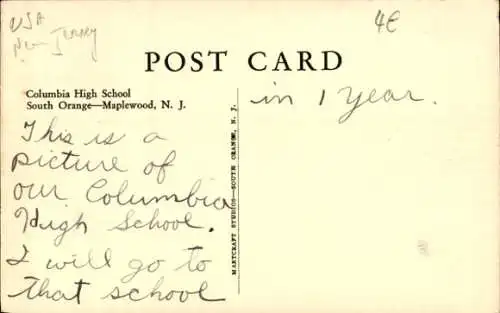 USA
New Jersey
4€
POST CARD
Columbia High School
South Orange—Maplewood, N. J.
This is a
picture of
our Columbia
High School.
I will go to
that school
in 1 year.
MARTCRAFT STUDIOS—SOUTH ORANGE, N. J.